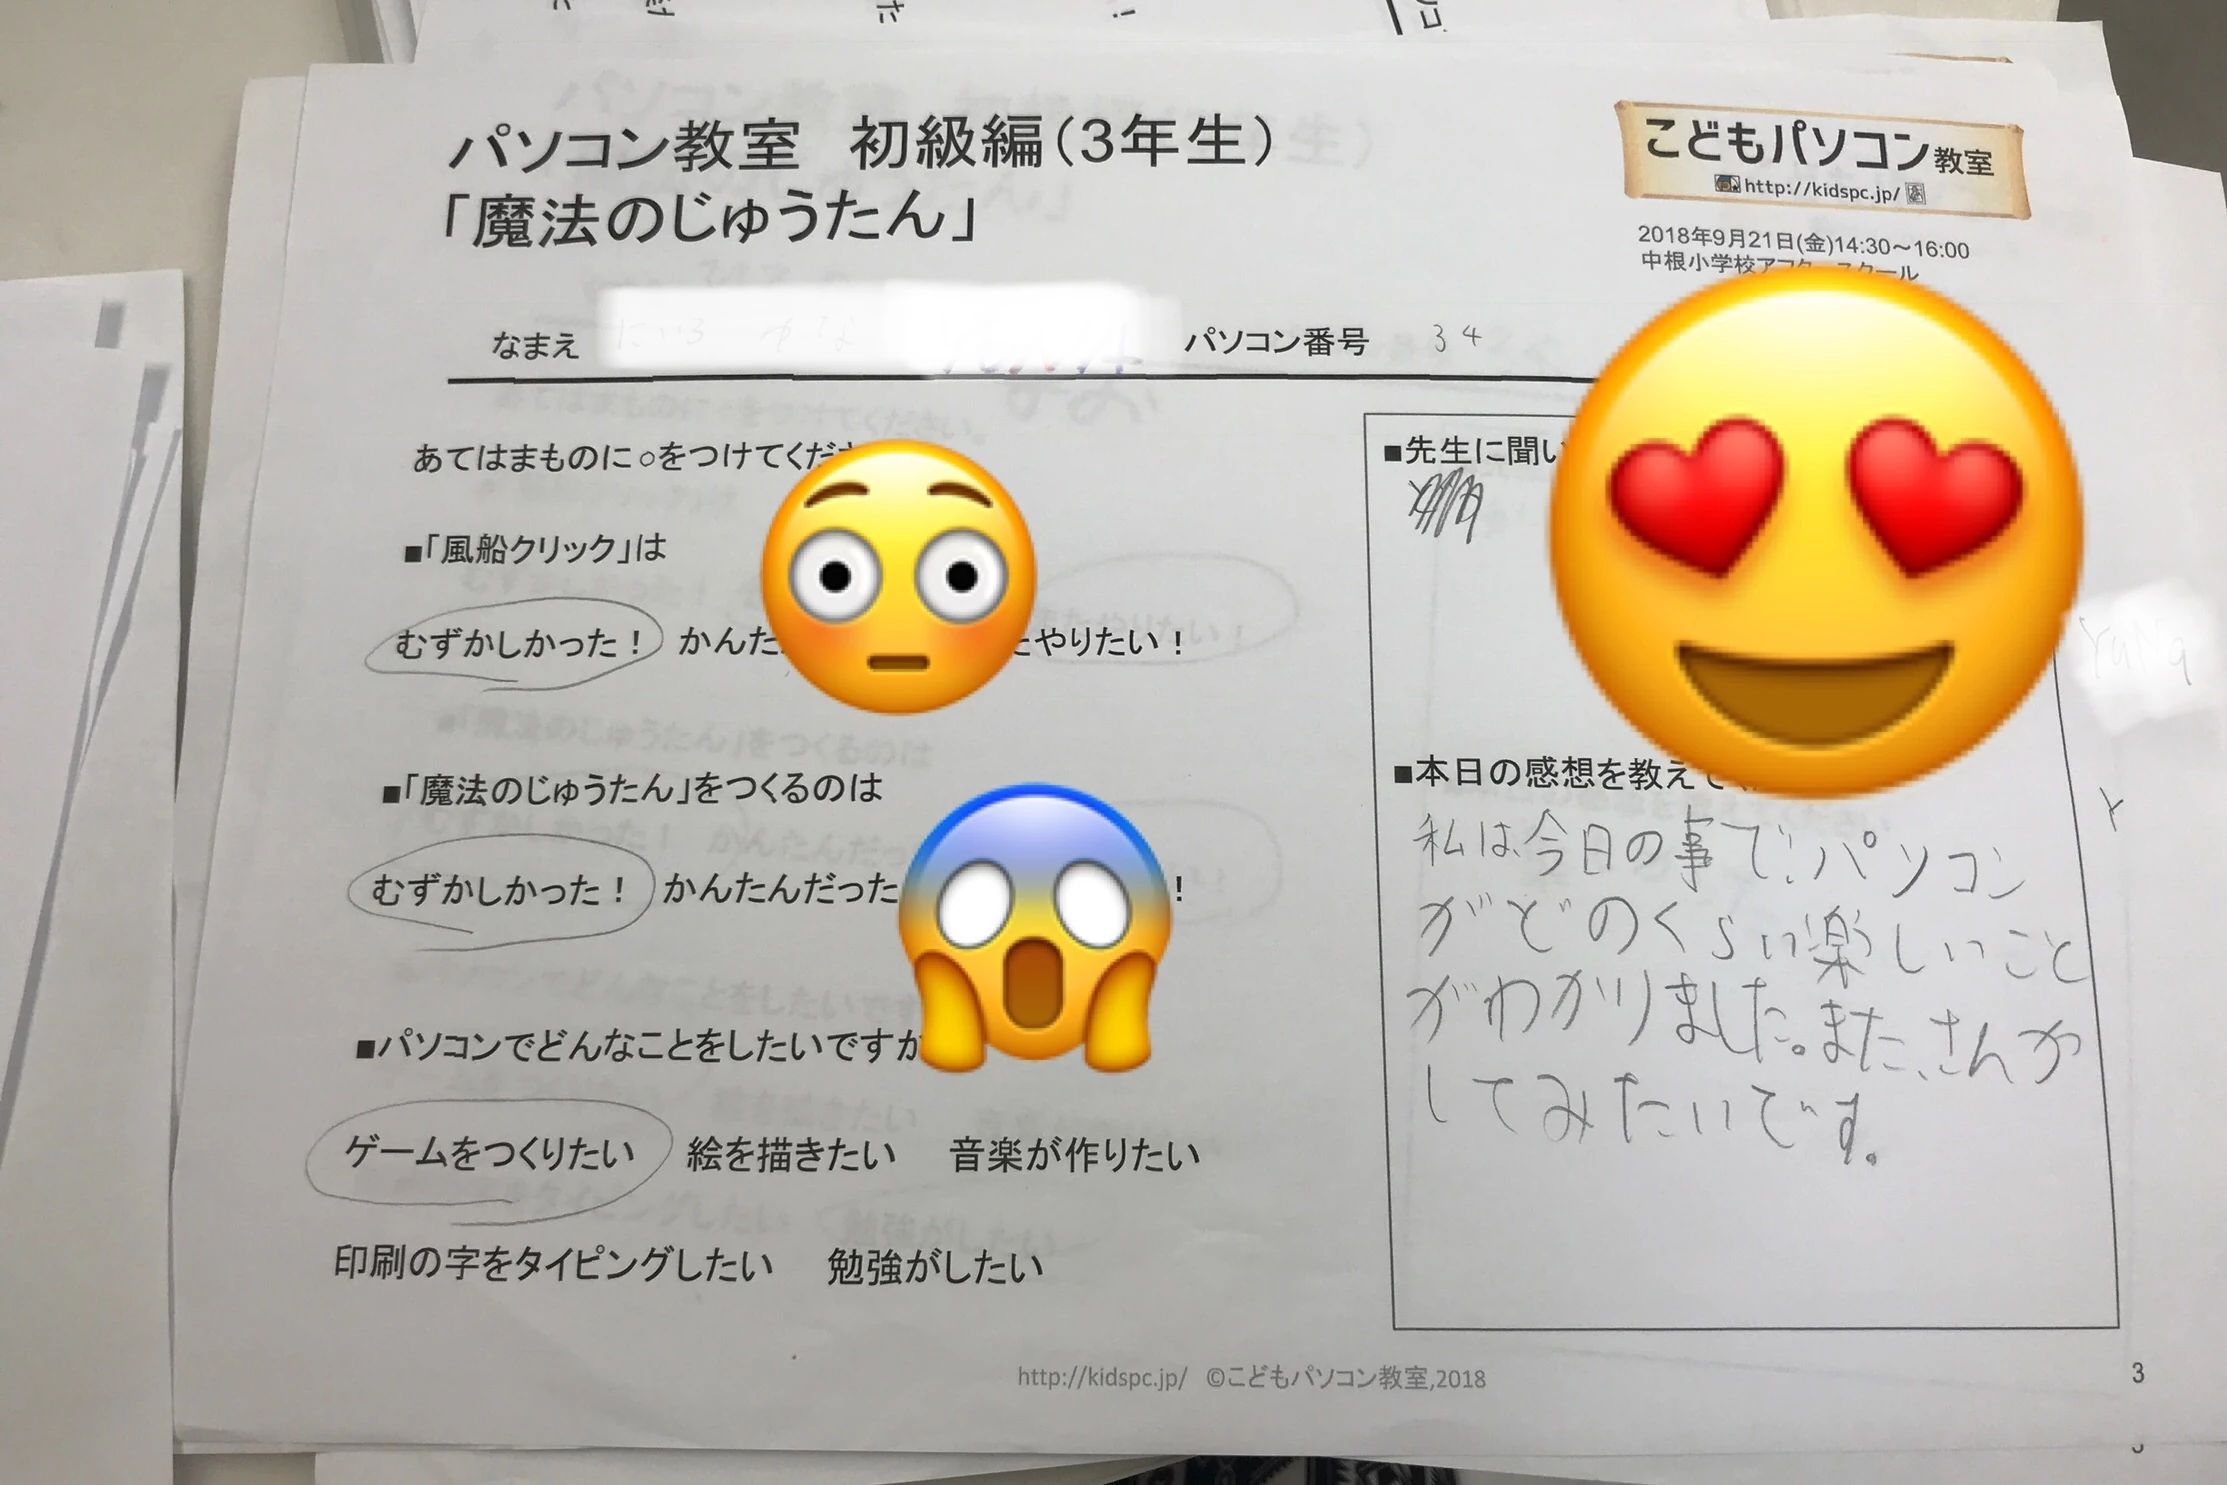 パソコン教室　初級編（3年生）
「魔法のじゅうたん」
こどもパソコン教室
http://kidspc.jp/
2018年9月21日(金)14:30～16:00
中根小学校アフタースクール
なまえ
パソコン番号　34
あてはまものに○をつけてくだ
■「風船クリック」は
むずかしかった！　かんた　たやりたい！
■「魔法のじゅうたん」をつくるのは
むずかしかった！　かんたんだった　！
■パソコンでどんなことをしたいですか
ゲームをつくりたい　絵を描きたい　音楽が作りたい
印刷の字をタイピングしたい　勉強がしたい
■先生に聞い
■本日の感想を教えて
私は今日の事で、パソコン
がどのくらい楽しいこと
がわかりました。また、さんか
してみたいです。
http://kidspc.jp/　©こどもパソコン教室,2018
3